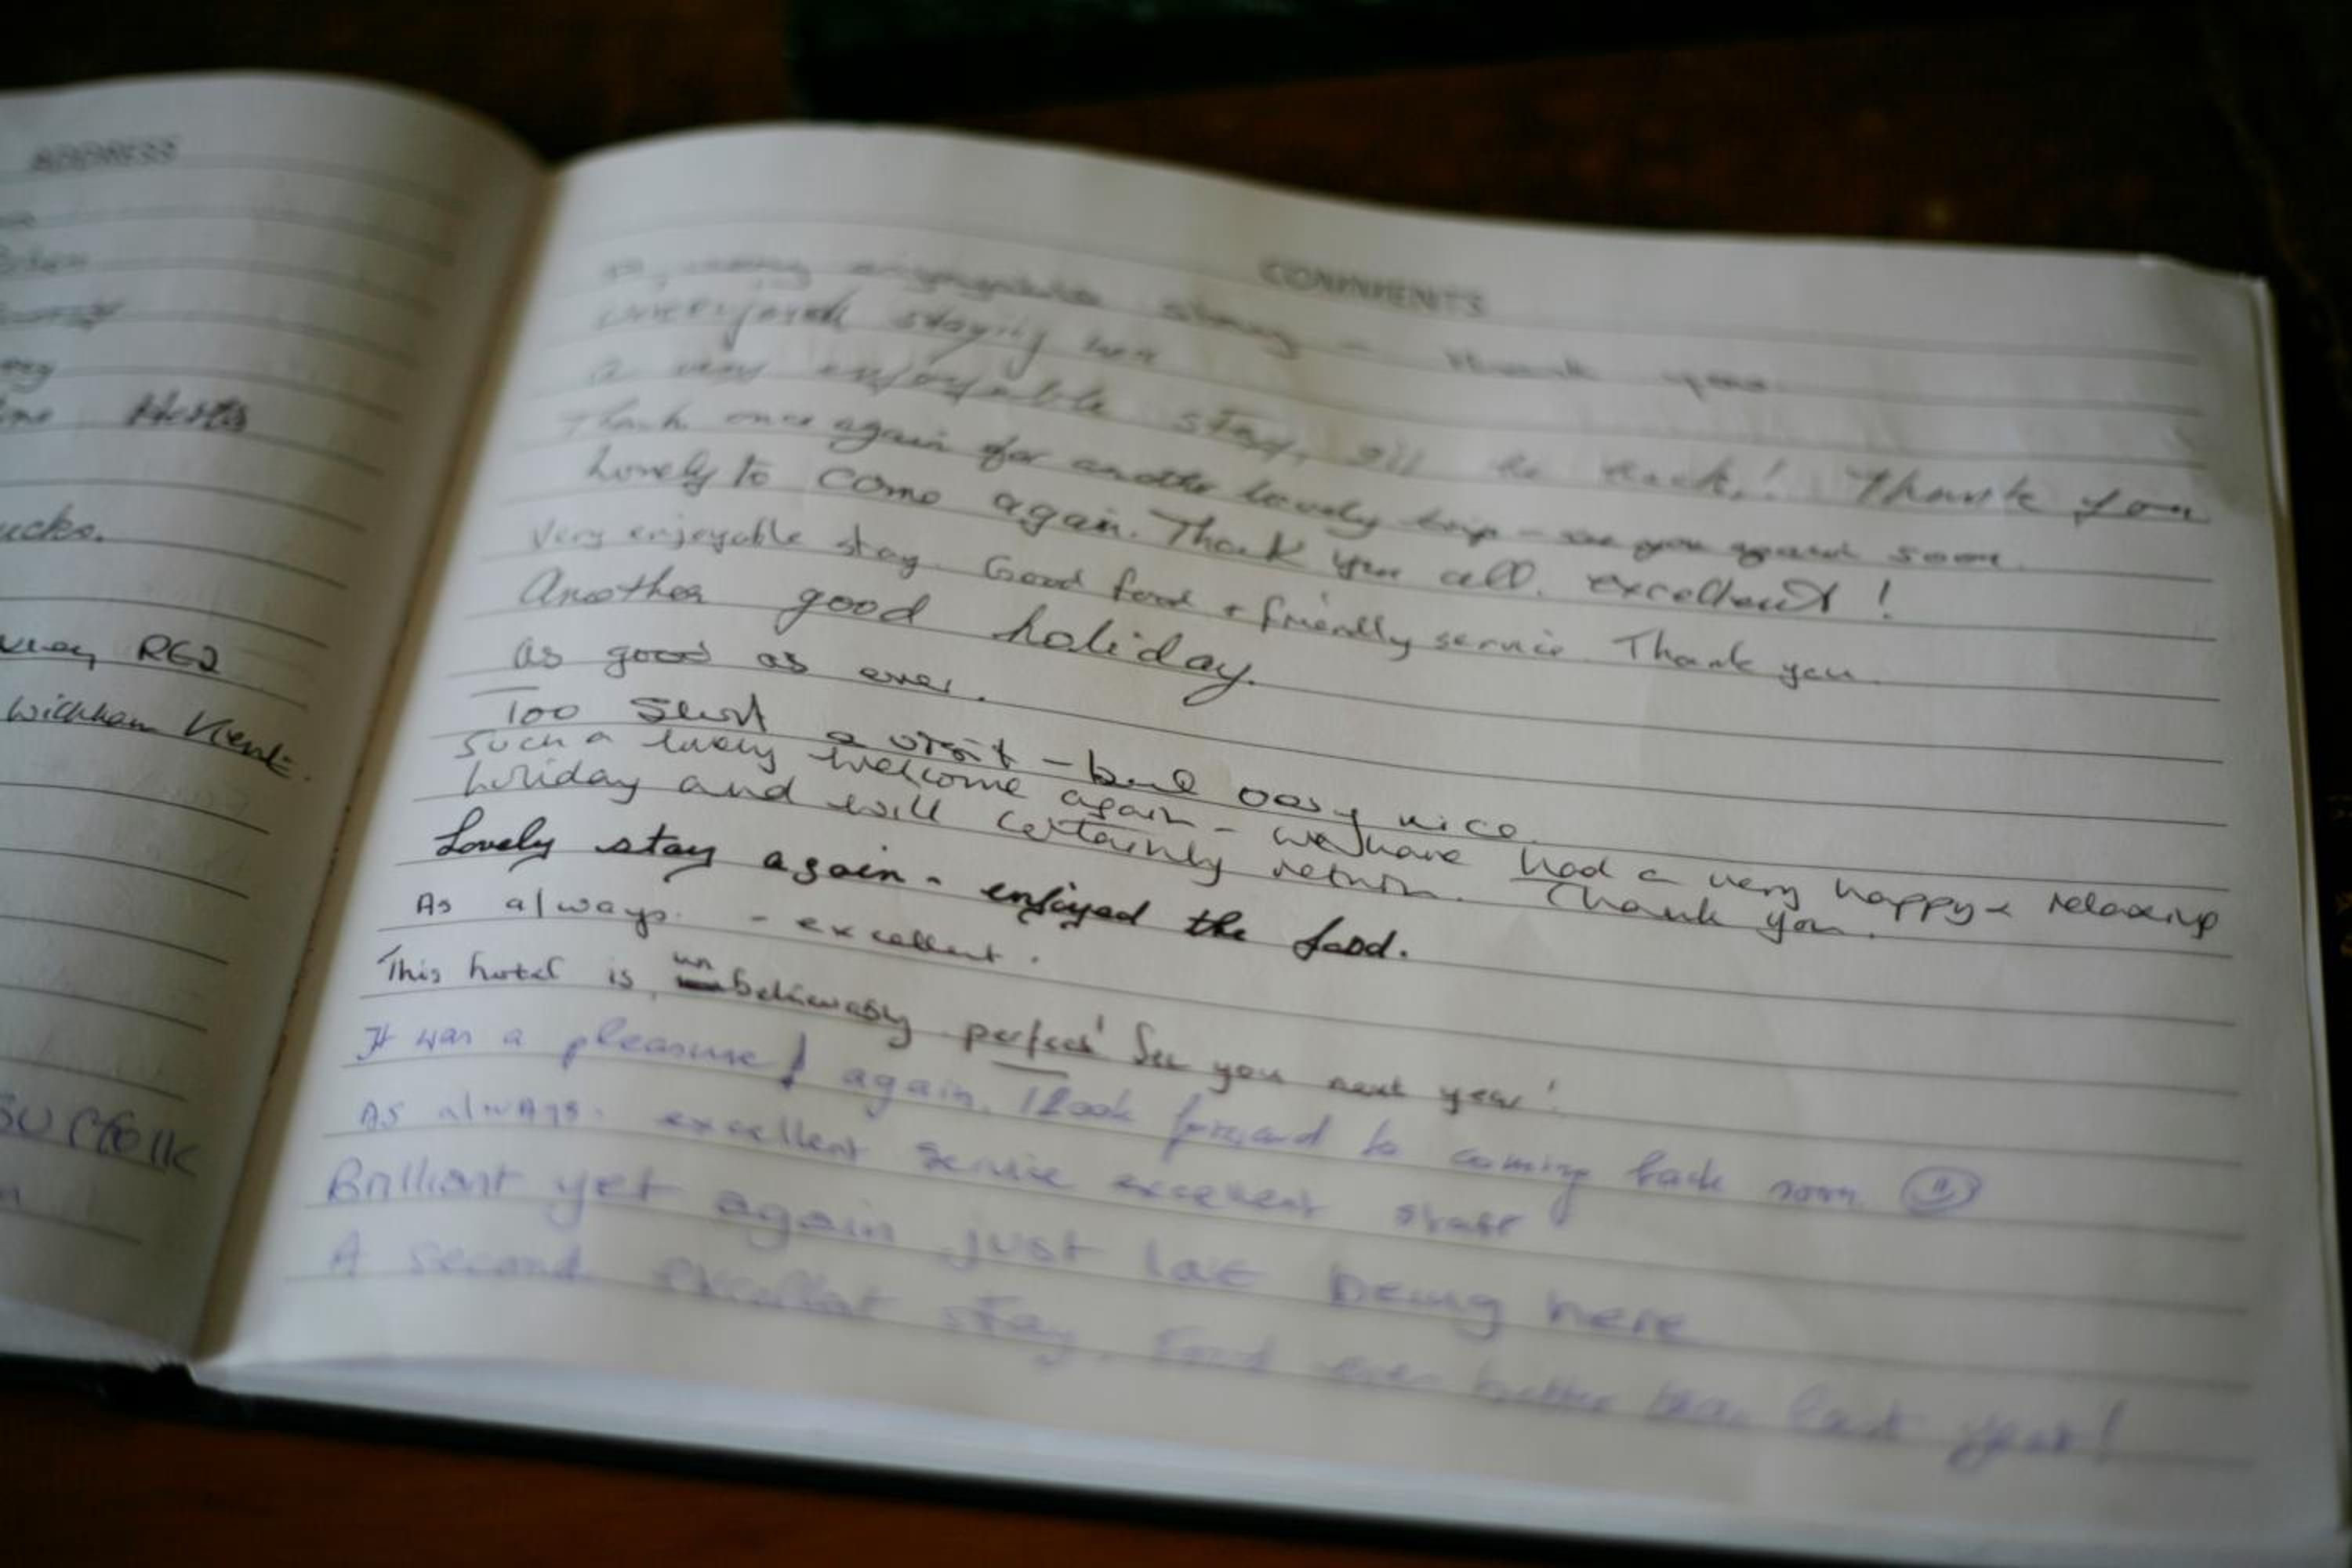 ADDRESS
Herts
ucks.
RG2
Wickham Kent.
Suffolk
COMMENTS
A very enjoyable stay - thank you
We enjoyed staying here
A very enjoyable stay, be back! Thank you
Thank once again for another lovely trip - see you again soon
Lovely to come again. Thank you all. excellent!
Very enjoyable stay. Good food + friendly service. Thank you.
Another good holiday.
As good as ever.
Too short a visit - but very nice
Such a lovely welcome again - we have had a very happy & relaxing
holiday and will certainly return. Thank you.
Lovely stay again - enjoyed the food.
As always - excellent.
This hotel is unbelievably perfect! See you next year!
It was a pleasure again. I look forward to coming back soon
As always. excellent service excellent staff
Brilliant yet again just love being here
A second excellent stay. Food even better than last year!